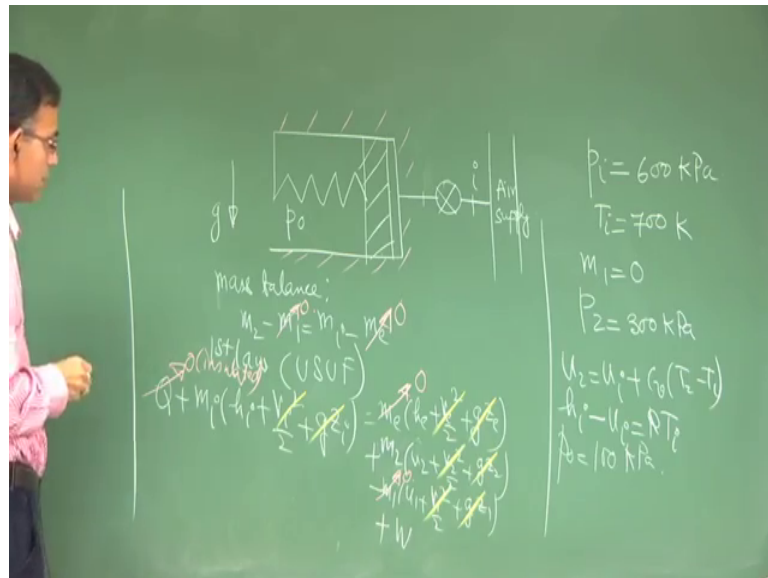 g
p₀
i
Air
supply
mass balance:
m₂ - m₁ = mᵢ - mₑ
0
0
1st law (USUF)
0 (insulated)
Q + mᵢ(hᵢ + Vᵢ²/2 + gzᵢ) = mₑ(hₑ + Vₑ²/2 + gzₑ)
0
+ m₂(u₂ + V₂²/2 + gz₂)
- m₁(u₁ + V₁²/2 + gz₁)
0
+ W
pᵢ = 600 kPa
Tᵢ = 700 K
m₁ = 0
P₂ = 300 kPa
u₂ = uᵢ + Cᵥ(T₂ - Tᵢ)
hᵢ - uᵢ = RTᵢ
p₀ = 100 kPa.